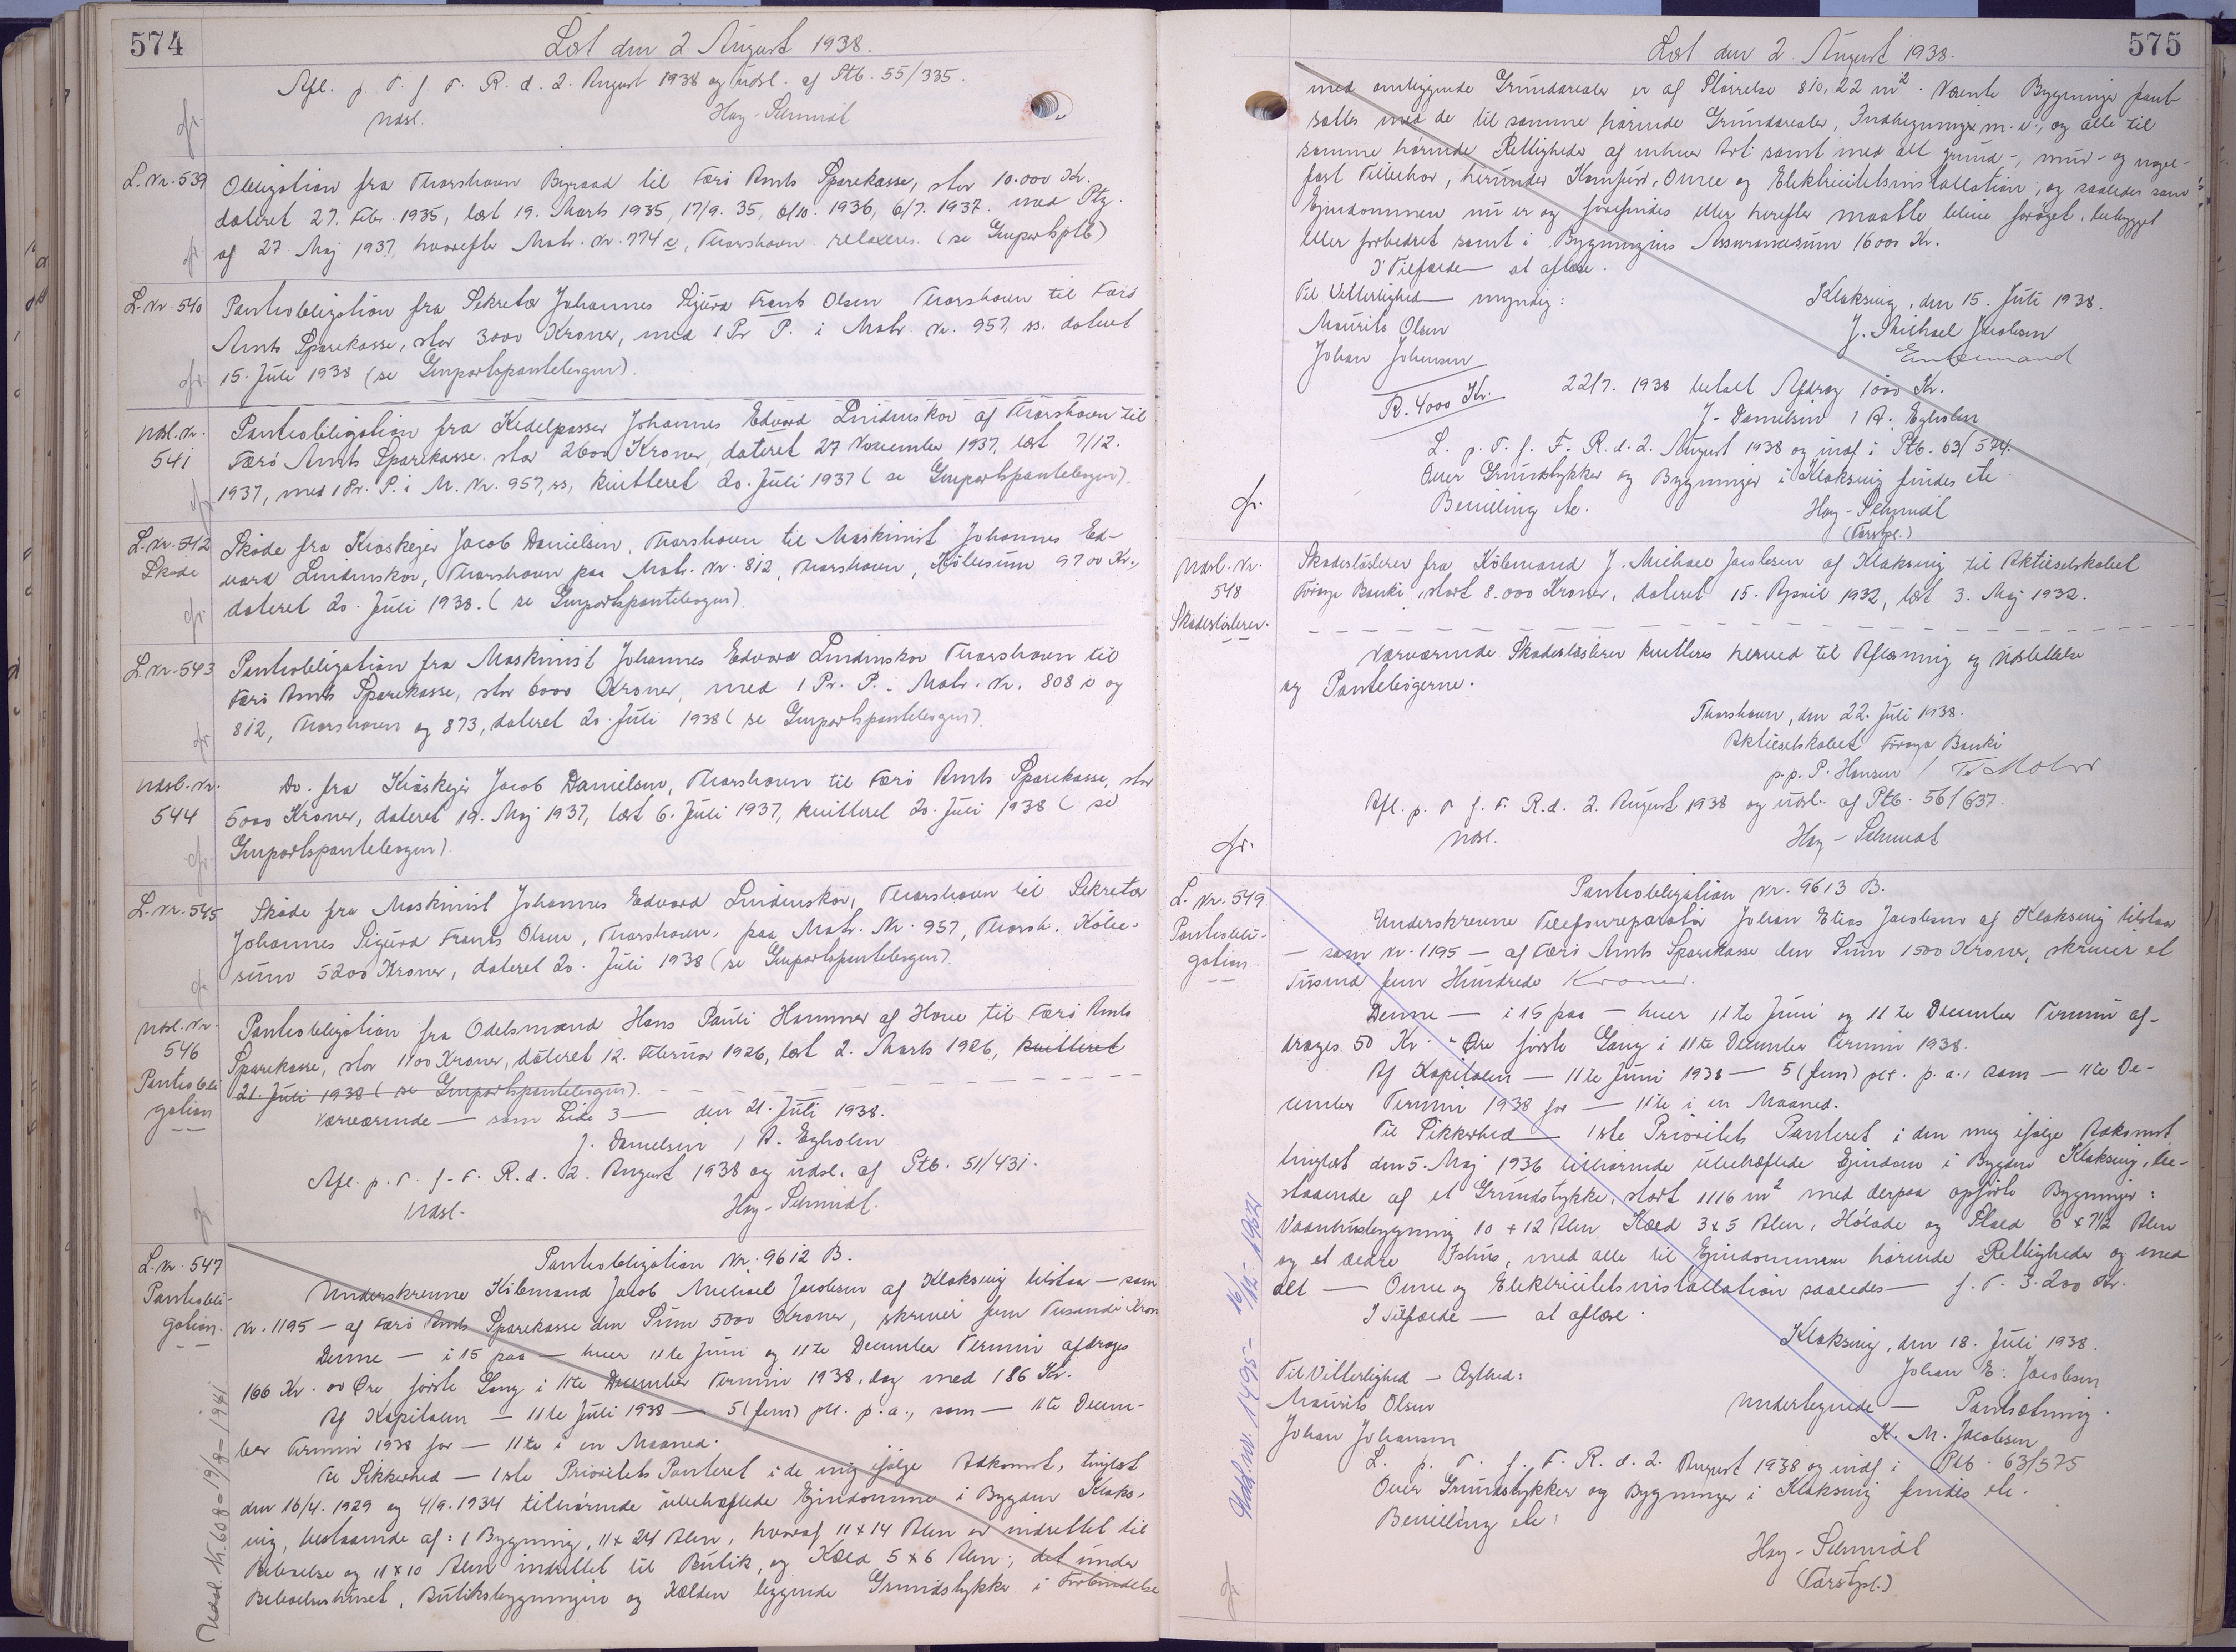 574
Læst den 2. August 1938.
Afl. p. T. f. F. R. d. 2. August 1938 og udsl. af Ptb. 55/335.
Udsl.
Høy-Schmidt
L. Nr. 539
Obligation fra Thorshavn Byraad til Færö Amts Sparekasse, stor 10.000 Kr.
dateret 27. Febr. 1935, læst 19. Marts 1935, 17/9. 35, 6/10. 1936, 6/7. 1937. med Ptg.
af 27. Maj 1937, hvorefter Matr. Nr. 774 c, Thorshavn relaxeres. (se Genpartsptb)
L. Nr. 540
Panteobligation fra Sekretær Johannes Sigurd Frants Olsen Thorshavn til Færö
Amts Sparekasse, stor 3000 Kroner, med 1 Pr. P. i Matr. Nr. 957, ss. dateret
15. Juli 1938 (se Genpartspantebogen).
Udsl. Nr.
541
Panteobligation fra Kedelpasser Johannes Edvard Lindenskov af Thorshavn til
Færö Amts Sparekasse stor 2600 Kroner, dateret 27 November 1937, læst 7/12.
1937, med 1 Pr. P. i M. Nr. 957, ss, kvitteret 20. Juli 1937 (se Genpartspantebogen).
L. Nr. 542
Sköde
Sköde fra Kioskejer Jacob Danielsen, Thorshavn til Maskinist Johannes Ed-
vard Lindenskov, Thorshavn paa Matr. Nr. 812, Thorshavn, Köbesum 9700 Kr.,
dateret 20. Juli 1938. (se Genpartspantebogen).
L. Nr. 543
Panteobligation fra Maskinist Johannes Edvard Lindenskov Thorshavn til
Færö Amts Sparekasse, stor 6000 Kroner, med 1 Pr. P. i Matr. Nr. 808 c og
812, Thorshavn og 873, dateret 20. Juli 1938 (se Genpartspantebogen).
Udsl. Nr.
544
Do. fra Kioskejer Jacob Danielsen, Thorshavn til Færö Amts Sparekasse, stor
5000 Kroner, dateret 19. Maj 1937, læst 6. Juli 1937, kvitteret 20. Juli 1938 (se
Genpartspantebogen).
L. Nr. 545
Sköde fra Maskinist Johannes Edvard Lindenskov, Thorshavn til Sekretær
Johannes Sigurd Frants Olsen, Thorshavn, paa Matr. Nr. 957, Thorsh. Köbe-
sum 5200 Kroner, dateret 20. Juli 1938 (se Genpartspantebogen).
Udsl. Nr.
546
Panteobli
gation
Panteobligation fra Odelsmand Hans Pauli Hammer af Hove til Færö Amts
Sparekasse, stor 1100 Kroner, dateret 12. Februar 1926, læst 2. Marts 1926, kvitteret
21. Juli 1938 (se Genpartspantebogen).
Nærværende — som Side 3 — den 21. Juli 1938.
J. Danielsen / A. Egholm
Afl. p. T. f. F. R. d. 2. August 1938 og udsl. af Ptb. 51/431.
Udsl.
Høy-Schmidt.
L. Nr. 547
Panteobli-
gation.
Panteobligation Nr. 9612 B.
Underskrevne Köbmand Jacob Michael Jacobsen af Klaksvig tilstaa — som
Nr. 1195 — af Færö Amts Sparekasse den Sum 5000 Kroner, skriver fem Tusinde Kron
Denne — i 15 paa — hver 11te Juni og 11te December Termin afdrages
166 Kr. 00 Øre förste Gang i 11te December Termin 1938, dog med 186 Kr.
Af Kapitalen — 11te Juli 1938 — 5 (fem) pCt. p. a., som — 11te Decem-
ber Termin 1938 for — 11te i en Maaned.
Til Sikkerhed — 1ste Prioritets Panteret i de mig ifölge Adkomst, tinglæst
den 16/4. 1929 og 4/9. 1934 tilhörende ubehæftede Ejendomme i Bygden Klaks-
vig, bestaaende af: 1 Bygning, 11 x 24 Alen, hvoraf 11 x 14 Alen er indrettet til
Beboelse og 11 x 10 Alen indrettet til Butik, og Kæld 5 x 6 Alen; det under
Beboelseshuset, Butiksbygningen og Kælden liggende Grundstykke i Forbindelse
Udsl. Nr. 608 - 19/8 - 1941
575
Læst den 2. August 1938.
med omliggende Grundarealer er af Störrelse 810,22 m². Nævnte Bygninger pant-
sættes med de til samme hörende Grundarealer, Indhegninger m. v., og alle til
samme hörende Rettigheder af enhver Art samt med alt grund-, mur- og nagel-
fast Tilbehör, herunder Komfur, Ovne og Elektricitetsinstallation, og saaledes som
Ejendommen nu er og forefindes eller herefter maatte blive foröget, bebygget
eller forbedret samt i Bygningens Assurancesum 16000 Kr.
I Tilfælde — at aflæse.
Til Vitterlighed — myndig:
Klaksvig, den 15. Juli 1938.
Maurits Olsen
J. Michael Jacobsen
Johan Johansen
Enkemand
R. 4000 Kr.
22/7. 1938 betalt Afdrag 1000 Kr.
J. Danielsen / A. Egholm
L. p. T. f. F. R. d. 2. August 1938 og indf. i Ptb. 63/574.
Over Grundstykker og Bygninger i Klaksvig findes ete
Bevilling etc.
Høy-Schmidt
(Tarstpl.)
Udsl. Nr.
548
Skadeslösbrev.
Skadeslösbrev fra Köbmand J. Michael Jacobsen af Klaksvig til Aktieselskabet
Föroya Banki, stort 8.000 Kroner, dateret 15. April 1932, læst 3. Maj 1932.
Nærværende Skadeslösbrev kvitteres herved til Aflæsning og Udslettelse
af Pantebögerne.
Thorshavn, den 22. Juli 1938.
Aktieselskabet Föroya Banki
p.p. P. Hansen /
Afl. p. T. f. F. R. d. 2. August 1938 og udsl. af Ptb. 56/637.
Udsl.
Høy-Schmidt
L. Nr. 549
Panteobli-
gation
Panteobligation Nr. 9613 B.
Underskrevne Telefonreparatör Johan Elias Jacobsen af Klaksvig tilstaa
— som Nr. 1195 — af Færö Amts Sparekasse den Sum 1500 Kroner, skriver et
Tusind fem Hundrede Kroner.
Denne — i 15 paa — hver 11te Juni og 11te December Termin af-
drages 50 Kr. " Øre förste Gang i 11te December Termin 1938.
Af Kapitalen — 11te Juni 1938 — 5 (fem) pCt. p. a., som — 11te De-
cember Termin 1938 for — 11te i en Maaned.
Til Sikkerhed — 1ste Prioritets Panteret i den mig ifölge Adkomst
tinglæst den 5. Maj 1936 tilhörende ubehæftede Ejendom i Bygden Klaksvig, be-
staaende af et Grundstykke, stort 1116 m² med derpaa opförte Bygninger:
Vaaningsbygning 10 x 12 Alen, Kæld 3 x 5 Alen, Hölade og Stald 6 x 7½ Alen
og et ældre Ishus, med alle til Ejendommen hörende Rettigheder og med
alt — Ovne og Elektricitetsinstallation saaledes — f. T. 3.200 Kr.
I Tilfælde — at aflæse.
Klaksvig, den 18. Juli 1938.
Til Vitterlighed — Ægthed:
Johan E. Jacobsen
Maurits Olsen
Undertegnede — Pantsætning.
Johan Johansen
K. M. Jacobsen
L. p. T. f. F. R. d. 2. August 1938 og indf. i Ptb. 63/575
Over Grundstykker og Bygninger i Klaksvig findes ete.
Bevilling etc.
Høy-Schmidt
(Tarstpl.)